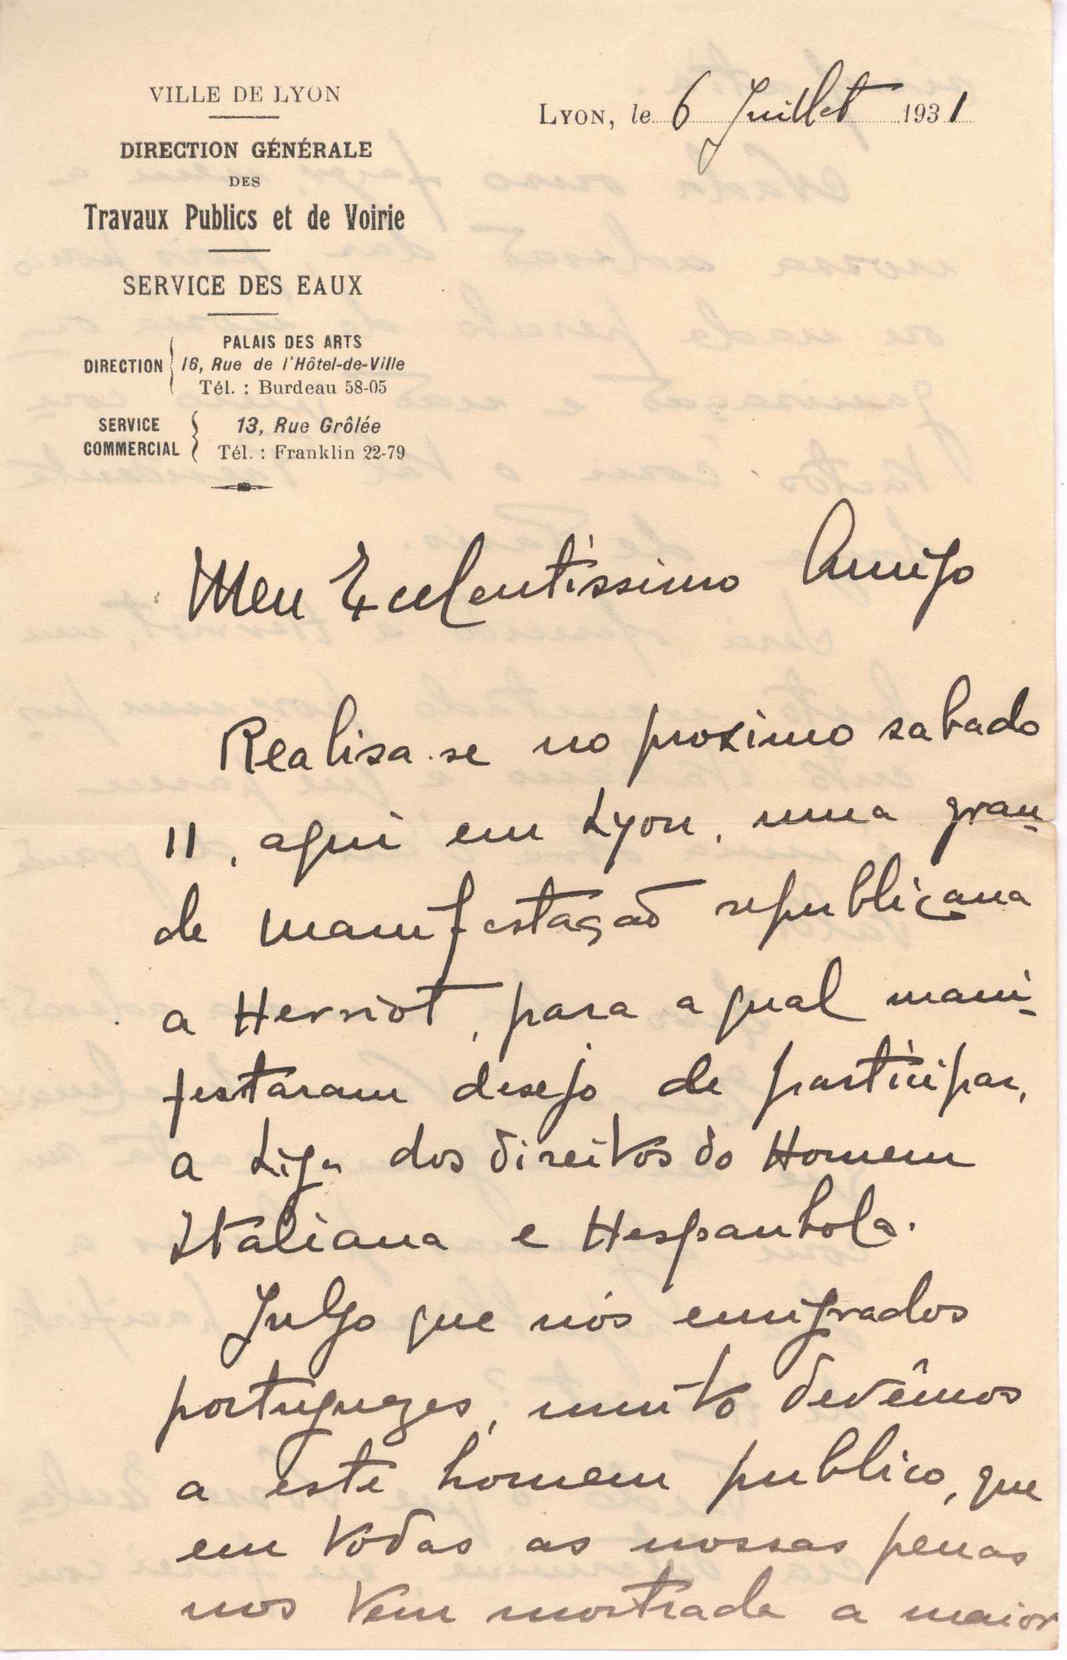 VILLE DE LYON
DIRECTION GÉNÉRALE
DES
Travaux Publics et de Voirie
SERVICE DES EAUX
DIRECTION
PALAIS DES ARTS
16, Rue de l'Hôtel-de-Ville
Tél. : Burdeau 58-05
SERVICE COMMERCIAL
13, Rue Grôlée
Tél. : Franklin 22-79
LYON, le 6 Juillet 1931
Meu Excelentissimo Amigo
Realisa-se no proximo sabado
11, aqui em Lyon, uma gran-
de manifestação republicana
a Herriot, para a qual mani-
festaram desejo de participar,
a Liga dos direitos do Homem
Italiana e Hespanhola.
Julgo que nós emigrados
portuguezes, muito devêmos
a este homem publico, que
em todas as nossas penas
nos tem mostrado a maior